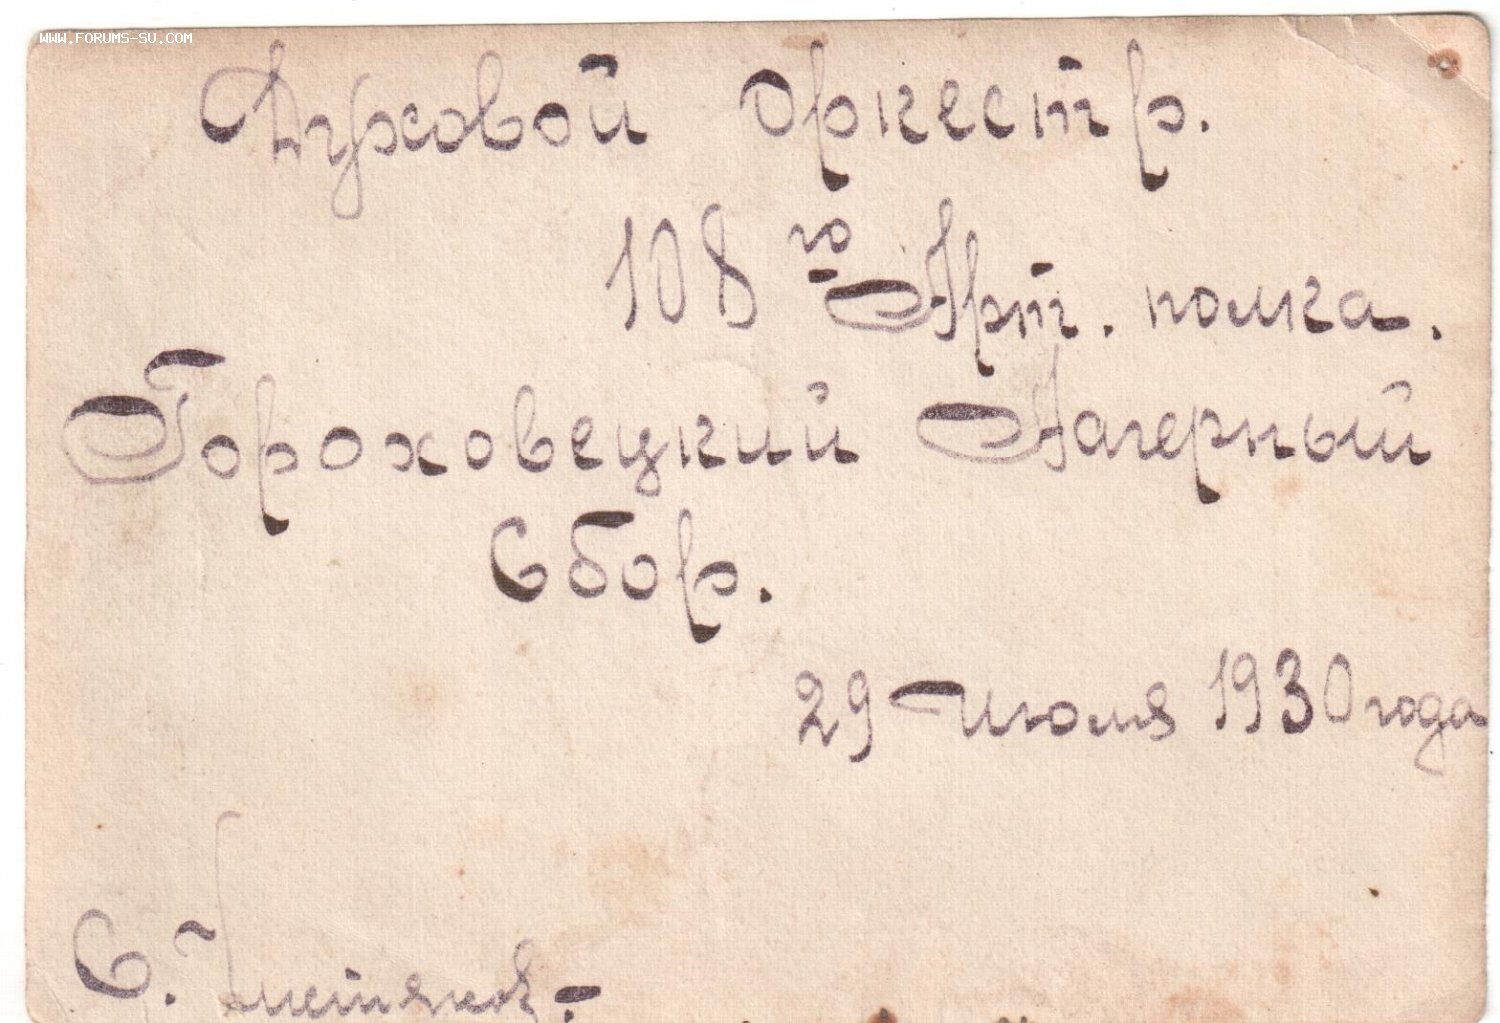 WWW.FORUMS-SU.COM
Духовой оркестр.
108го Арт. полка.
Гороховецкий Лагерный
Сбор.
29 Июля 1930 года
С.